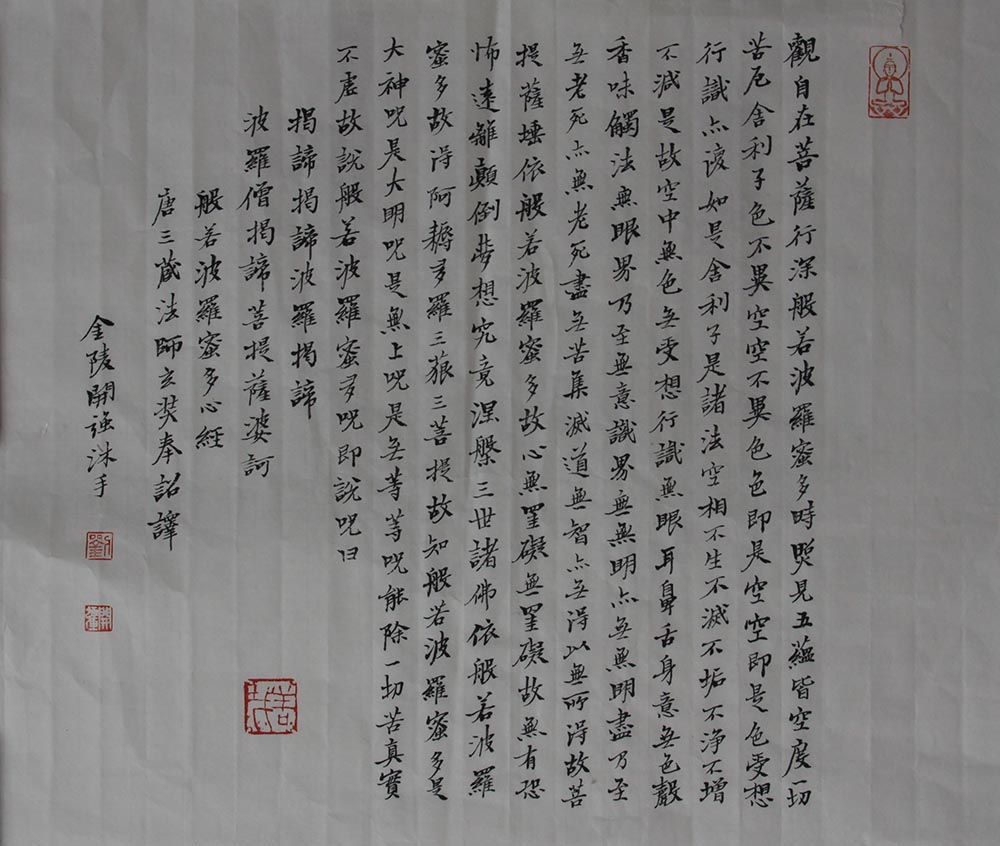 觀自在菩薩行深般若波羅蜜多時照見五蘊皆空度一切
苦厄舍利子色不異空空不異色色即是空空即是色受想
行識亦復如是舍利子是諸法空相不生不滅不垢不淨不增
不減是故空中無色无受想行識無眼耳鼻舌身意无色聲
香味觸法無眼界乃至無意識界無無明亦无無明盡乃至
无老死亦無老死盡无苦集滅道無智亦无得以無所得故菩
提薩埵依般若波羅蜜多故心無罣礙無罣礙故無有恐
怖遠離顛倒夢想究竟涅槃三世諸佛依般若波羅
蜜多故得阿耨多羅三藐三菩提故知般若波羅蜜多是
大神咒是大明咒是無上咒是无等等咒能除一切苦真實
不虛故說般若波羅蜜多咒即說咒曰
揭諦揭諦波羅揭諦
波羅僧揭諦菩提薩婆訶
般若波羅蜜多心經
唐三藏法師玄奘奉詔譯
金陵開強沐手
劉